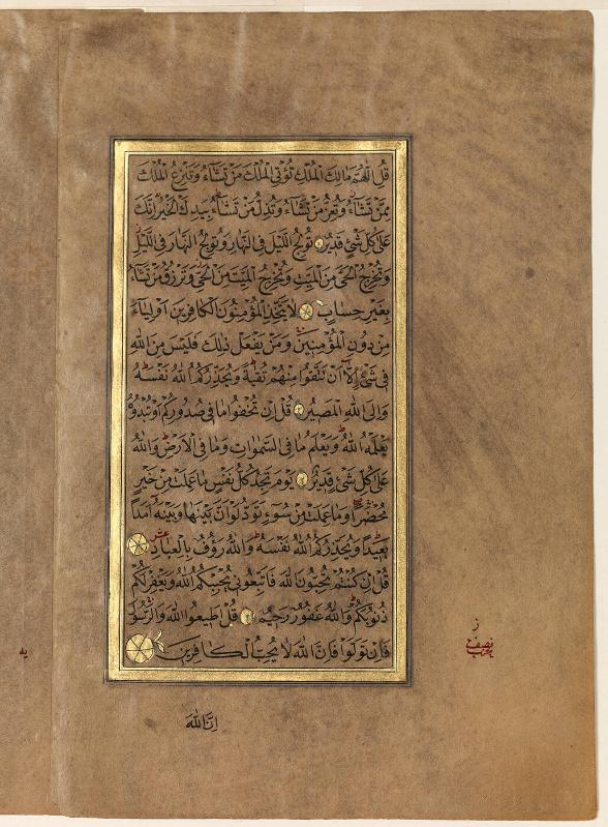 قُلِ اللّٰهُمَّ مَالِكَ الْمُلْكِ تُؤْتِي الْمُلْكَ مَنْ تَشَاءُ وَتَنْزِعُ الْمُلْكَ
مِمَّنْ تَشَاءُ وَتُعِزُّ مَنْ تَشَاءُ وَتُذِلُّ مَنْ تَشَاءُ بِيَدِكَ الْخَيْرُ اِنَّكَ
عَلٰى كُلِّ شَيْءٍ قَدِيرٌ تُولِجُ اللَّيْلَ فِي النَّهَارِ وَتُولِجُ النَّهَارَ فِي اللَّيْلِ
وَتُخْرِجُ الْحَيَّ مِنَ الْمَيِّتِ وَتُخْرِجُ الْمَيِّتَ مِنَ الْحَيِّ وَتَرْزُقُ مَنْ تَشَاءُ
بِغَيْرِ حِسَابٍ لَا يَتَّخِذِ الْمُؤْمِنُونَ الْكَافِرِينَ اَوْلِيَاءَ
مِنْ دُونِ الْمُؤْمِنِينَ وَمَنْ يَفْعَلْ ذٰلِكَ فَلَيْسَ مِنَ اللهِ
فِي شَيْءٍ اِلَّا اَنْ تَتَّقُوا مِنْهُمْ تُقٰيةً وَيُحَذِّرُكُمُ اللهُ نَفْسَهُ
وَاِلَى اللهِ الْمَصِيرُ قُلْ اِنْ تُخْفُوا مَا فِي صُدُورِكُمْ اَوْ تُبْدُوهُ
يَعْلَمْهُ اللهُ وَيَعْلَمُ مَا فِي السَّمٰوَاتِ وَمَا فِي الْاَرْضِ وَاللهُ
عَلٰى كُلِّ شَيْءٍ قَدِيرٌ يَوْمَ تَجِدُ كُلُّ نَفْسٍ مَا عَمِلَتْ مِنْ خَيْرٍ
مُحْضَرًا وَمَا عَمِلَتْ مِنْ سُوءٍ تَوَدُّ لَوْ اَنَّ بَيْنَهَا وَبَيْنَهُ اَمَدًا
بَعِيدًا وَيُحَذِّرُكُمُ اللهُ نَفْسَهُ وَاللهُ رَؤُفٌ بِالْعِبَادِ
قُلْ اِنْ كُنْتُمْ تُحِبُّونَ اللهَ فَاتَّبِعُونِي يُحْبِبْكُمُ اللهُ وَيَغْفِرْ لَكُمْ
ذُنُوبَكُمْ وَاللهُ غَفُورٌ رَحِيمٌ قُلْ اَطِيعُوا اللهَ وَالرَّسُولَ
فَاِنْ تَوَلَّوْا فَاِنَّ اللهَ لَا يُحِبُّ الْكَافِرِينَ
نصف
حزب
اِنَّ اللهَ